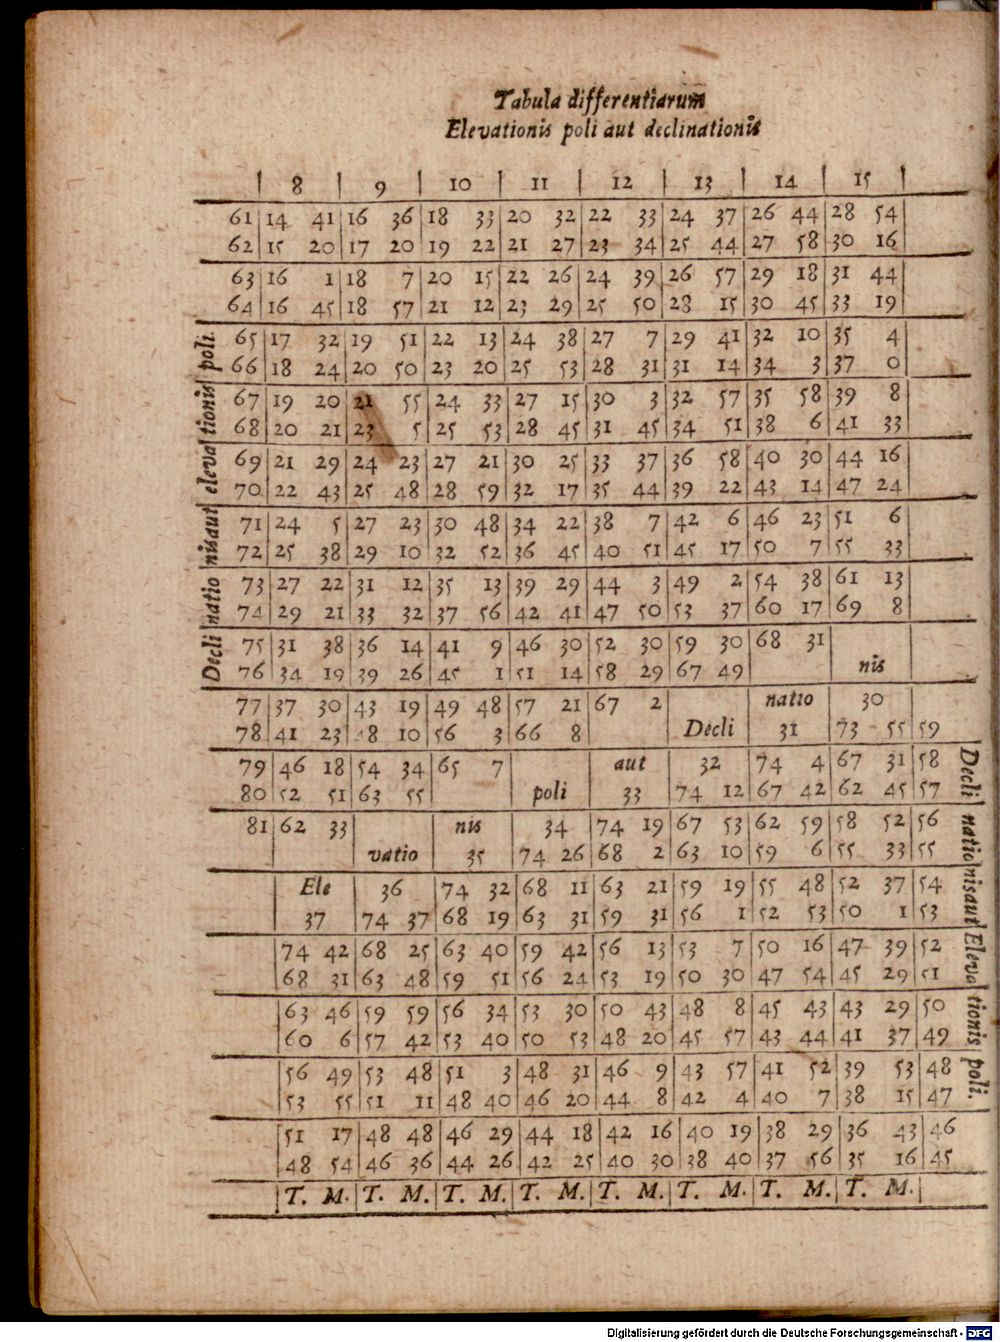 Tabula differentiarum
Elevationis poli aut declinationis
8 9 10 11 12 13 14 15
61 14 41 16 36 18 33 20 32 22 33 24 37 26 44 28 54
62 15 20 17 20 19 22 21 27 23 34 25 44 27 58 30 16
63 16 1 18 7 20 15 22 26 24 39 26 57 29 18 31 44
64 16 45 18 57 21 12 23 29 25 50 28 15 30 45 33 19
65 17 32 19 51 22 13 24 38 27 7 29 41 32 10 35 4
66 18 24 20 50 23 20 25 53 28 31 31 14 34 3 37 0
67 19 20 21 55 24 33 27 15 30 3 32 57 35 58 39 8
68 20 21 23 5 25 53 28 45 31 45 34 51 38 6 41 33
69 21 29 24 23 27 21 30 25 33 37 36 58 40 30 44 16
70 22 43 25 48 28 59 32 17 35 44 39 22 43 14 47 24
71 24 5 27 23 30 48 34 22 38 7 42 6 46 23 51 6
72 25 38 29 10 32 52 36 45 40 51 45 17 50 7 55 33
73 27 22 31 12 35 13 39 29 44 3 49 2 54 38 61 13
74 29 21 33 32 37 56 42 41 47 50 53 37 60 17 69 8
75 31 38 36 14 41 9 46 30 52 30 59 30 68 31
76 34 19 39 26 45 1 51 14 58 29 67 49 nis
77 37 30 43 19 49 48 57 21 67 2 natio 30
78 41 23 48 10 56 3 66 8 Decli 31 73 55 59
79 46 18 54 34 65 7 aut 32 74 4 67 31 58
80 52 51 63 55 poli 33 74 12 67 42 62 45 57
81 62 33 nis 34 74 19 67 53 62 59 58 52 56
vatio 35 74 26 68 2 63 10 59 6 55 33 55
Ele 36 74 32 68 11 63 21 59 19 55 48 52 37 54
37 74 37 68 19 63 31 59 31 56 1 52 53 50 1 53
74 42 68 25 63 40 59 42 56 13 53 7 50 16 47 39 52
68 31 63 48 59 51 56 24 53 19 50 30 47 54 45 29 51
63 46 59 59 56 34 53 30 50 43 48 8 45 43 43 29 50
60 6 57 42 53 40 50 53 48 20 45 57 43 44 41 37 49
56 49 53 48 51 3 48 31 46 9 43 57 41 52 39 53 48
53 55 51 11 48 40 46 20 44 8 42 4 40 7 38 15 47
51 17 48 48 46 29 44 18 42 16 40 19 38 29 36 43 46
48 54 46 36 44 26 42 25 40 30 38 40 37 56 35 16 45
T. M. T. M. T. M. T. M. T. M. T. M. T. M. T. M.
Declinationis aut elevationis poli.
Declinationis aut Elevationis poli.
Digitalisierung gefördert durch die Deutsche Forschungsgemeinschaft - DFG